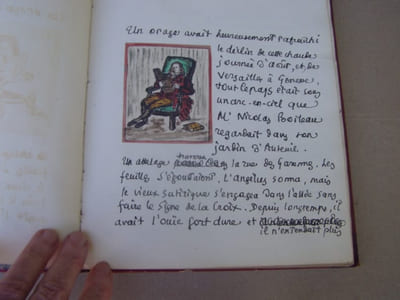 Un orage avait heureusement rafraîchi
le déclin de cette chaude
journée d'août, et, de
Versailles à Gonesse,
tout le pays était sous
un arc-en-ciel que
Mr Nicolas Boileau
regardait dans son
jardin d'Auteuil.
Un attelage traversa la rue des Garennes. Les
feuilles s'égouttaient. L'angélus sonna, mais
le vieux satirique s'engagea dans l'allée sans
faire le signe de la Croix. Depuis longtemps, il
avait l'ouïe fort dure et
il n'entendait plus